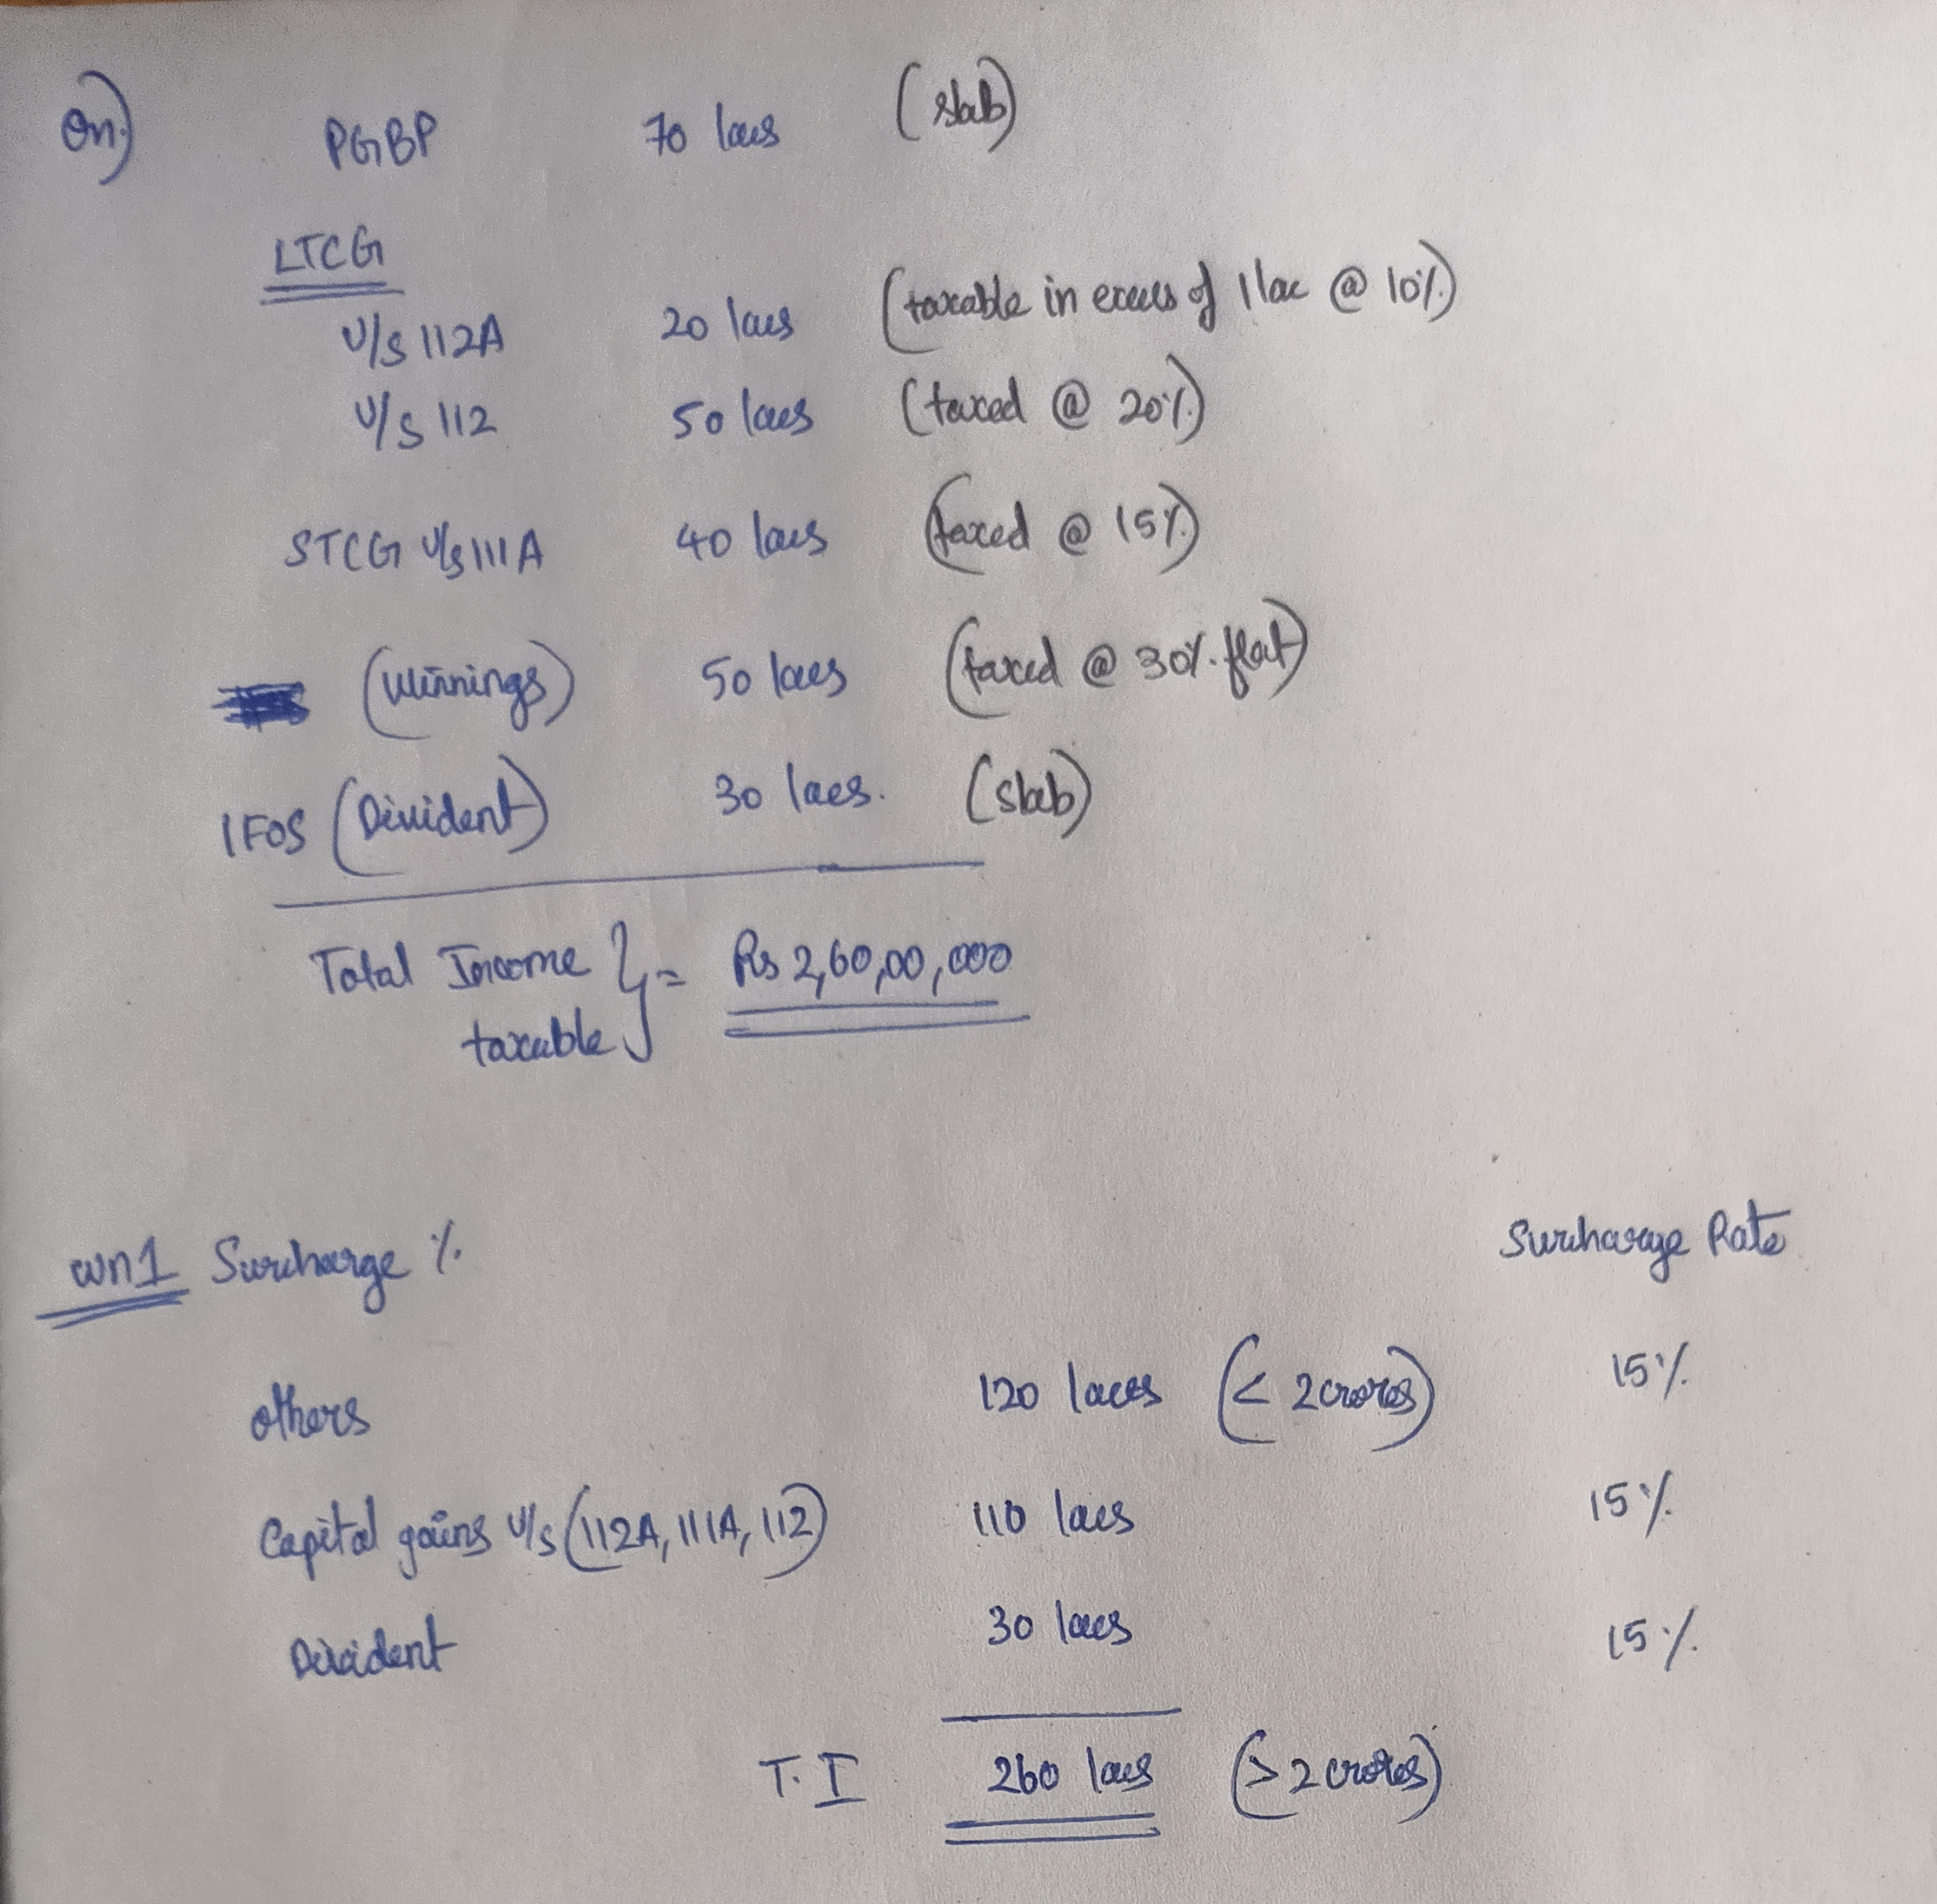 Qn.) PGBP 70 lacs (slab)
LTCG
U/s 112A 20 lacs (taxable in excess of 1 lac @ 10%)
U/s 112 50 lacs (taxed @ 20%)
STCG U/s 111A 40 lacs (taxed @ 15%)
(Winnings) 50 lacs (taxed @ 30% flat)
IFOS (Divident) 30 lacs. (slab)
Total Income taxable } = Rs 2,60,00,000
WN1 Surcharge % Surcharge Rate
others 120 lacs (< 2 crores) 15%
Capital gains U/s (112A, 111A, 112) 110 lacs 15%
Divident 30 lacs 15%
T.I 260 lacs (> 2 crores)